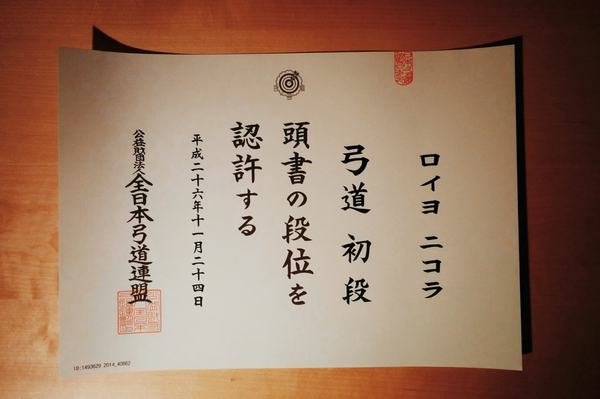 ロイヨ ニコラ
弓道 初段
頭書の段位を
認許する
平成二十六年十一月二十四日
公益財団法人全日本弓道連盟
ID:1493629 2014_40862